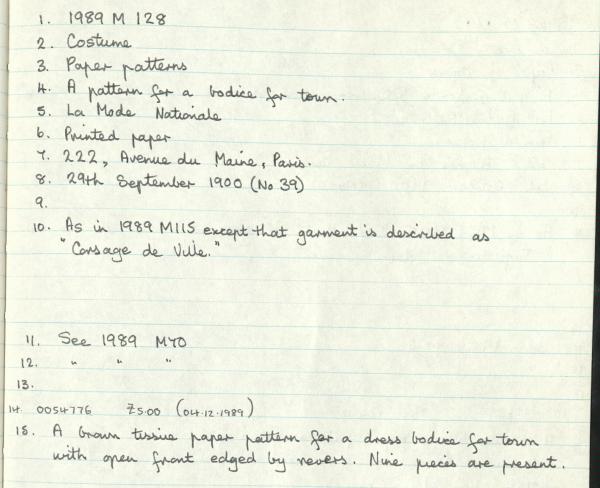 1. 1989 M 128
2. Costume
3. Paper patterns
4. A pattern for a bodice for town.
5. La Mode Nationale
6. Printed paper
7. 222, Avenue du Maine, Paris.
8. 29th September 1900 (No 39)
9.
10. As in 1989 M115 except that garment is described as
"Corsage de Ville."
11. See 1989 M70
12. " " "
13.
14. 0054776 £5.00 (04.12.1989)
15. A brown tissue paper pattern for a dress bodice for town
with open front edged by revers. Nine pieces are present.